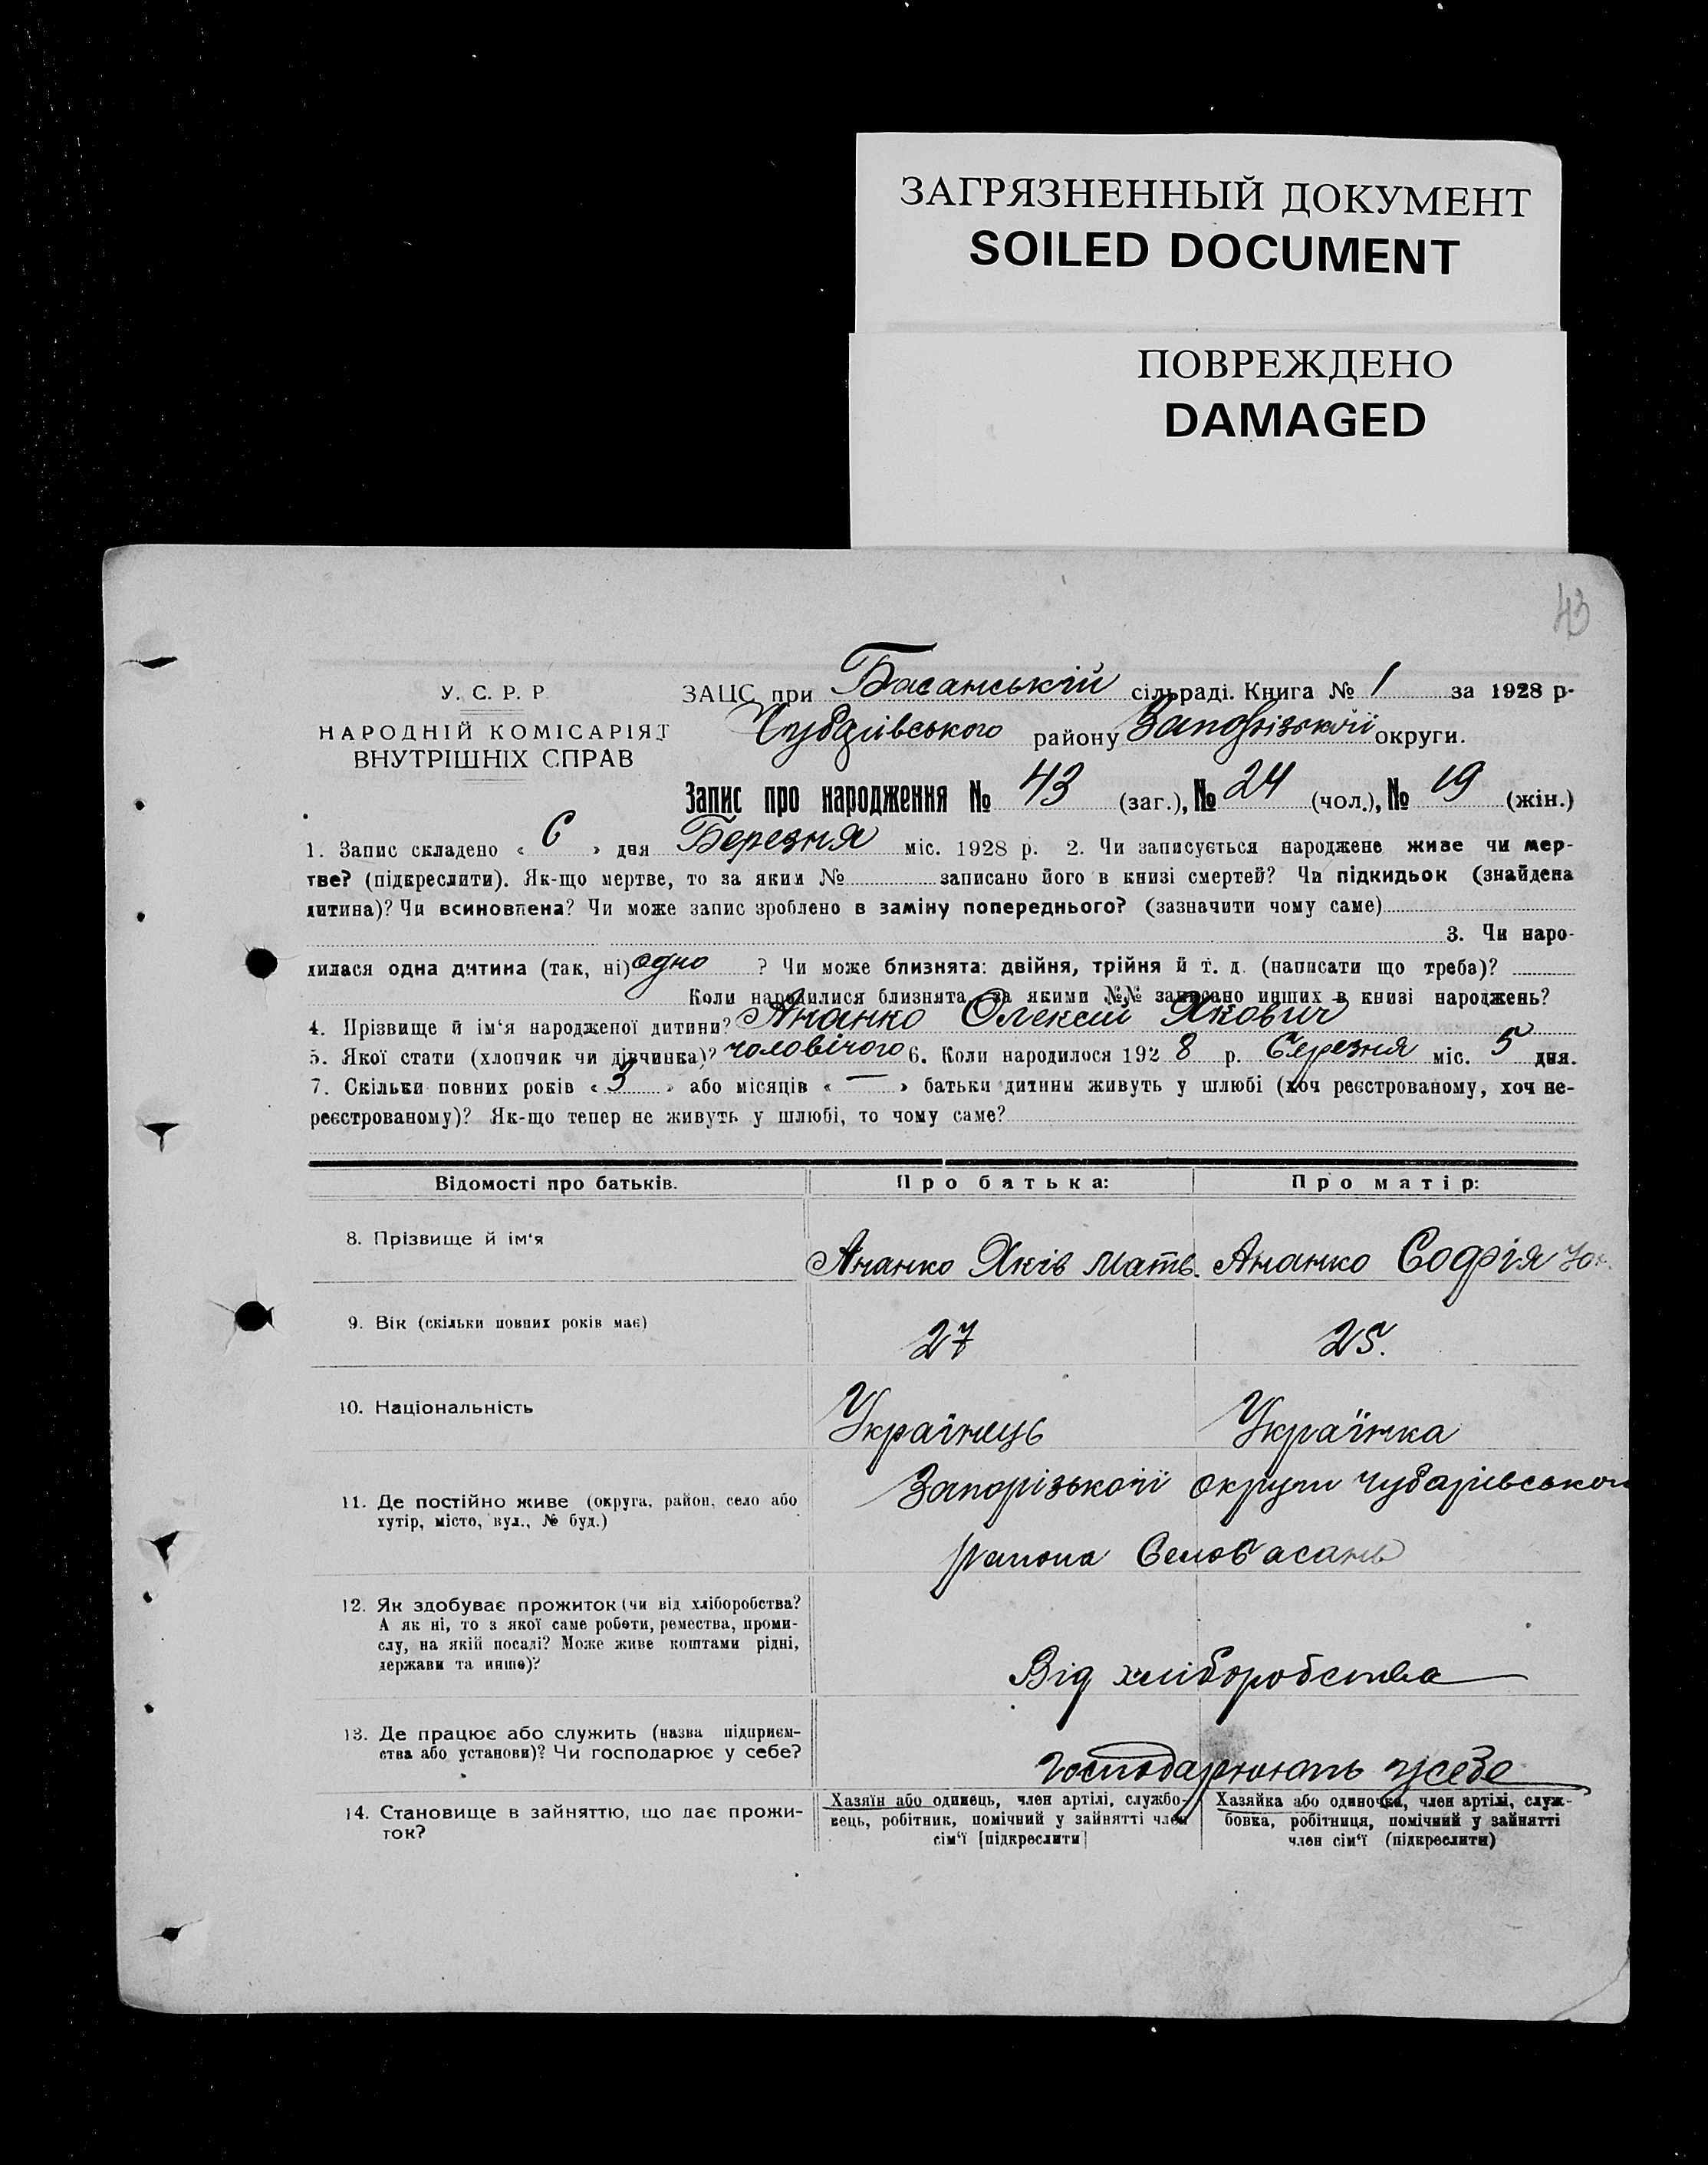 ЗАГРЯЗНЕННЫЙ ДОКУМЕНТ
SOILED DOCUMENT
ПОВРЕЖДЕНО
DAMAGED
43
У. С. Р. Р
НАРОДНІЙ КОМІСАРІЯТ
ВНУТРІШНІХ СПРАВ
ЗАЦС при Басанській сільраді. Книга № 1 за 1928 р.
Чубарівського району Запорізької округи.
Запис про народження № 43 (заг.), № 24 (чол.), № 19 (жін.)
1. Запис складено « 6 » дня Березня міс. 1928 р. 2. Чи записується народжене живе чи мер-
тве? (підкреслити). Як-що мертве, то за яким № записано його в книзі смертей? Чи підкидьок (знайдена
дитина)? Чи всиновлена? Чи може запис зроблено в заміну попереднього? (зазначити чому саме)
3. Чи наро-
дилася одна дитина (так, ні) одно ? Чи може близнята: двійня, трійня й т. д. (написати що треба)?
Коли народилися близнята, за якими №№ записано инших в книзі народжень?
4. Прізвище й ім‘я народженої дитини? Ананко Олексій Якович
5. Якої стати (хлопчик чи дівчинка)? чоловічого 6. Коли народилося 192 8 р. Березня міс. 5 дня.
7. Скільки повних років « 3 » або місяців « — » батьки дитини живуть у шлюбі (хоч реєстрованому, хоч не-
реєстрованому)? Як-що тепер не живуть у шлюбі, то чому саме?
Відомості про батьків. Про батька: Про матір:
8. Прізвище й ім‘я Ананко Яків Матв. Ананко Софія
9. Вік (скільки повних років має) 27 25.
10. Національність Українець Українка
11. Де постійно живе (округа, район, село або
хутір, місто, вул., № буд.)
Запорізької округи Чубарівського
района Село Басань
12. Як здобуває прожиток (чи від хліборобства?
А як ні, то з якої саме роботи, ремества, проми-
слу, на якій посаді? Може живе коштами рідні,
держави та инше)?
Від хліборобства
13. Де працює або служить (назва підприєм-
ства або установи)? Чи господарює у себе?
Господарюють у себе
14. Становище в зайняттю, що дає прожи-
ток?
Хазяїн або одинець, член артілі, службо-
вець, робітник, помічний у зайнятті член
сім‘ї [підкреслити]
Хазяйка або одиночка, член артілі, служ-
бовка, робітниця, помічний у зайнятті
член сім‘ї (підкреслити)